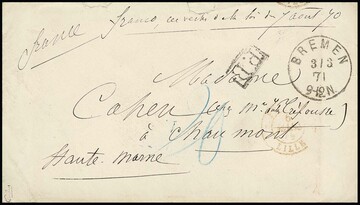 France
Franco, en vertu de la loi du 7 août 70
P.D.
BREMEN
3/3
71
9-12N.
Madame
Capen (chez Mr
à Chaumont
Haute-Marne